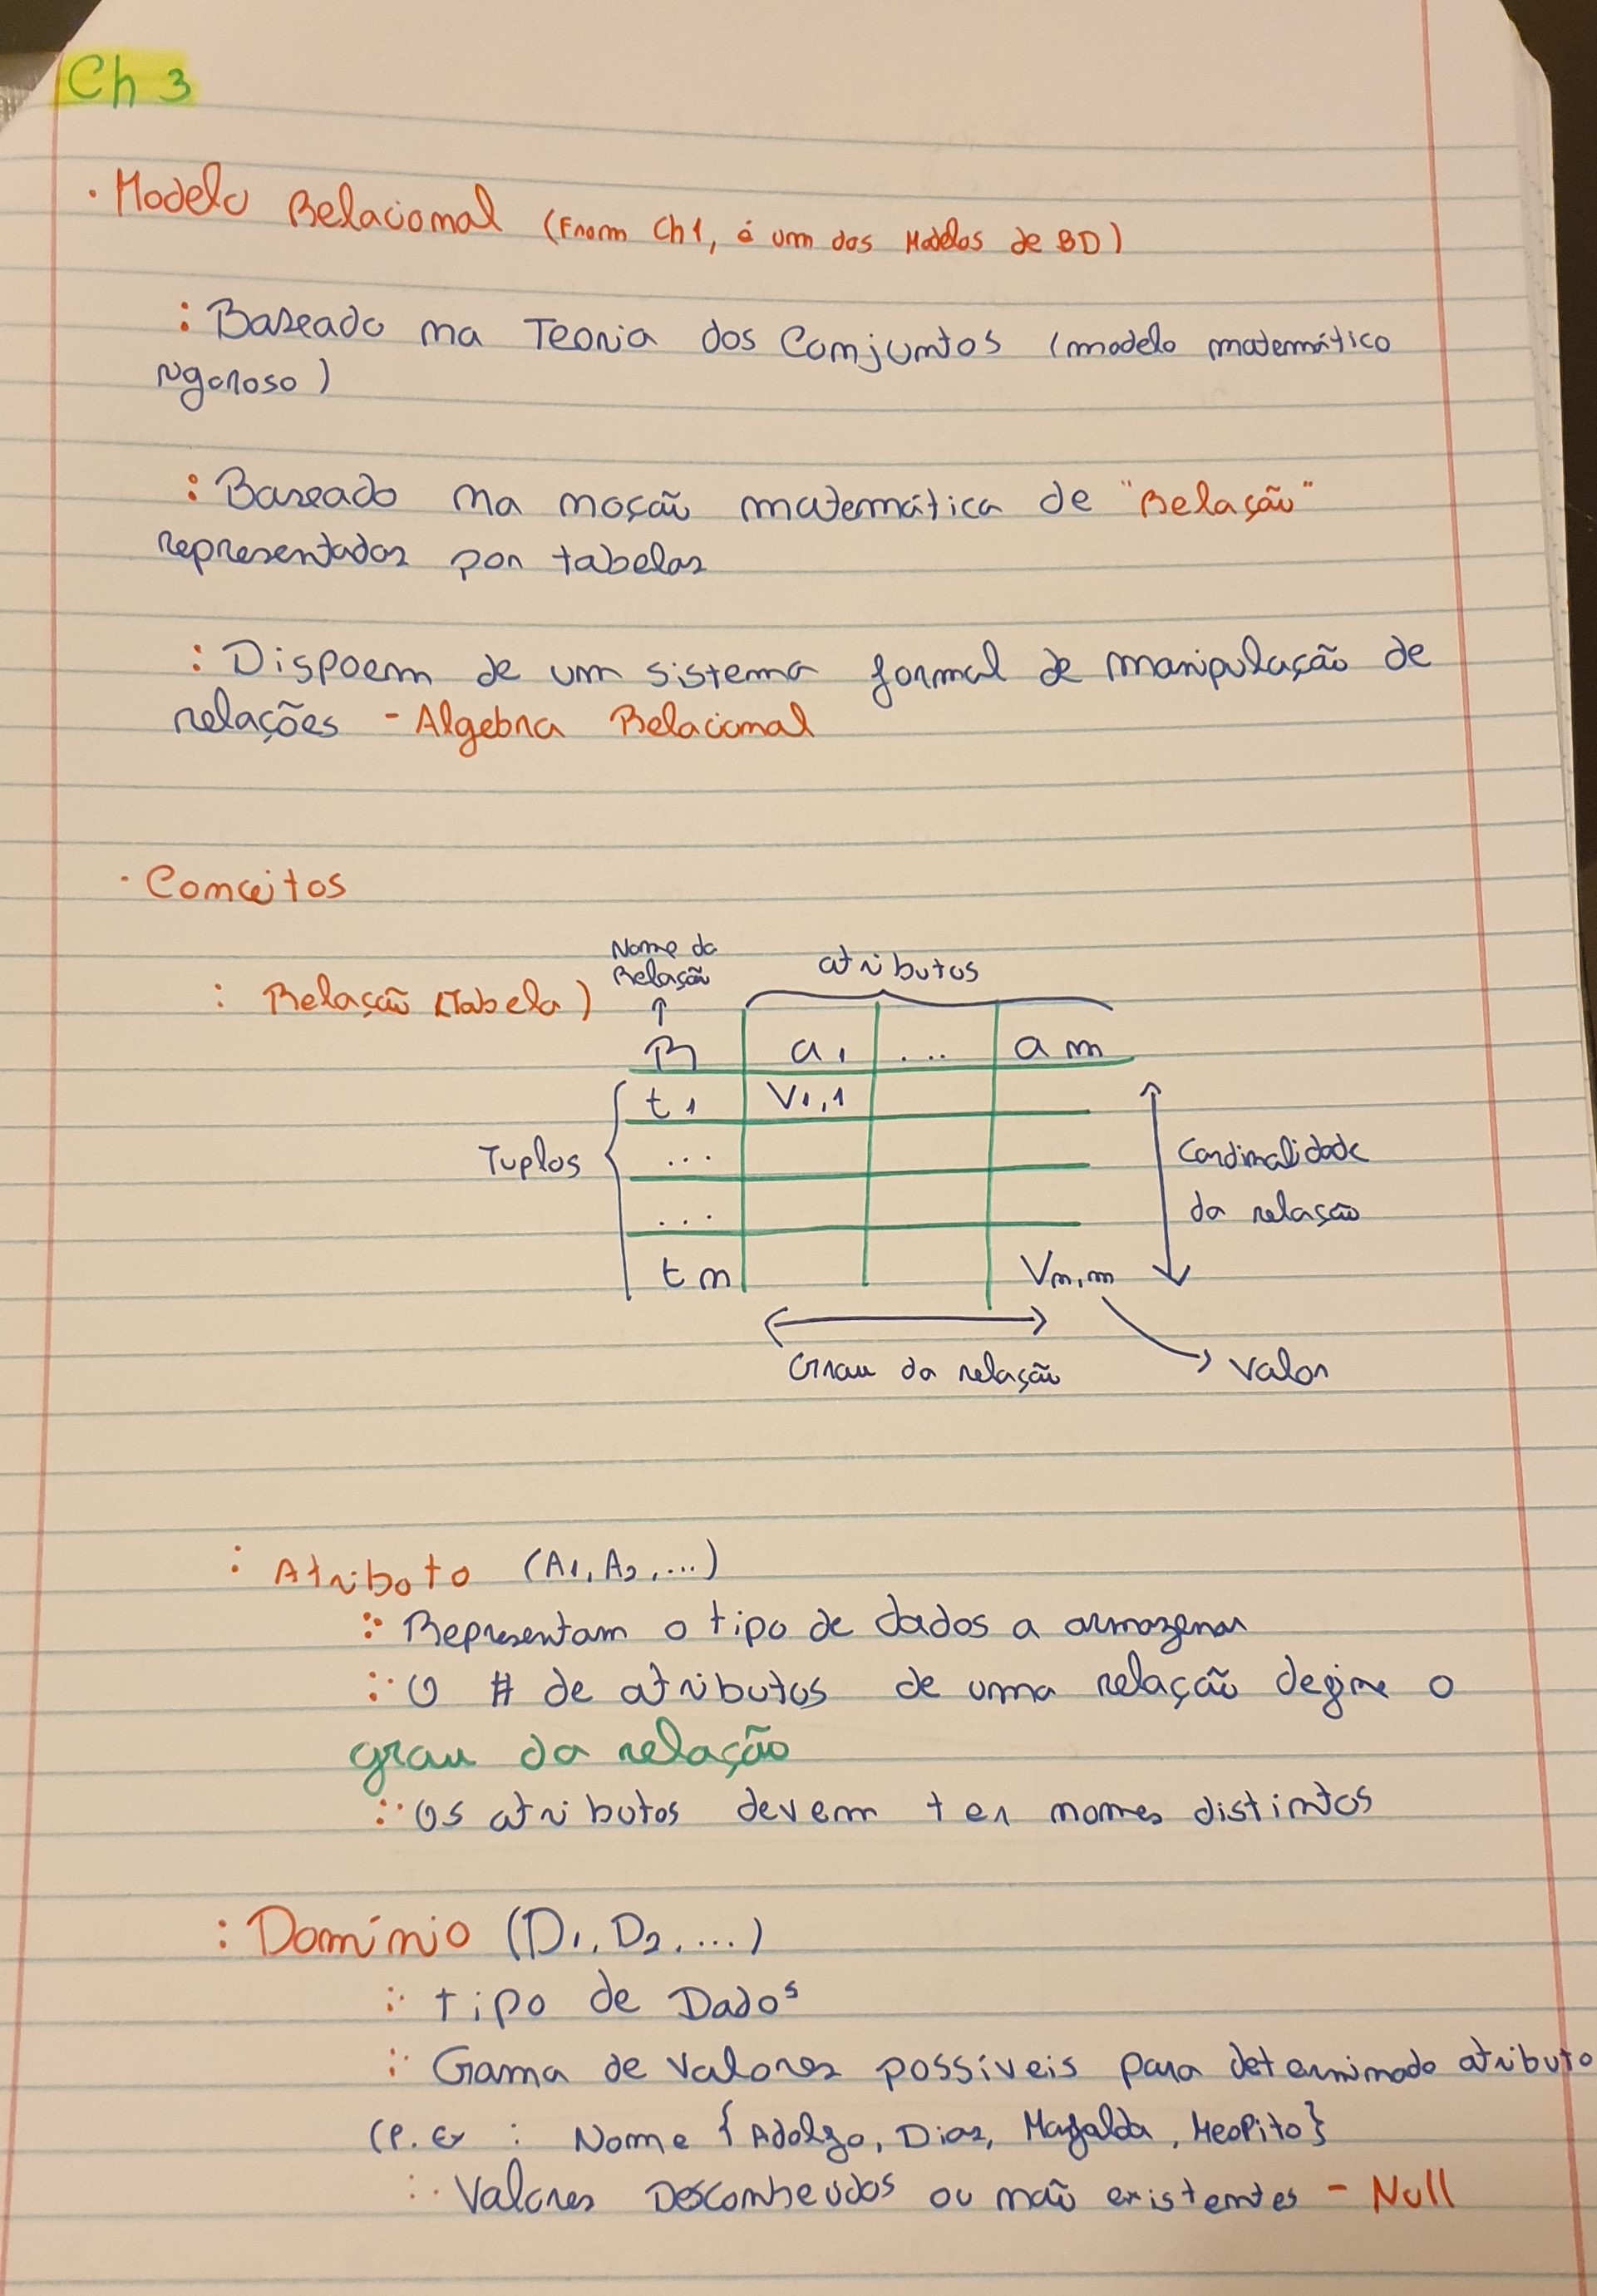 Ch 3
· Modelo Relacional (From Ch1, é um dos Modelos de BD)
: Baseado na Teoria dos Conjuntos (modelo matemático
rigoroso)
: Baseado na noção matemática de "Relação"
representadas por tabelas
: Dispoem de um sistema formal de manipulação de
relações - Algebra Relacional
· Conceitos
: Relação (Tabela)
Nome da
Relação
↑
atributos
R a1 ... am
t1 V1,1
Tuplos
...
...
tn Vn,m
Cardinalidade
da relação
Grau da relação
→ Valor
: Atributo (A1, A2, ...)
:· Representam o tipo de dados a armazenar
:· O # de atributos de uma relação define o
grau da relação
:· Os atributos devem ter nomes distintos
: Domínio (D1, D2, ...)
:· tipo de Dados
:· Gama de valores possíveis para determinado atributo
(P. Ex : Nome {Adolfo, Dias, Mafalda, }
:· Valores Desconhecidos ou não existentes - Null